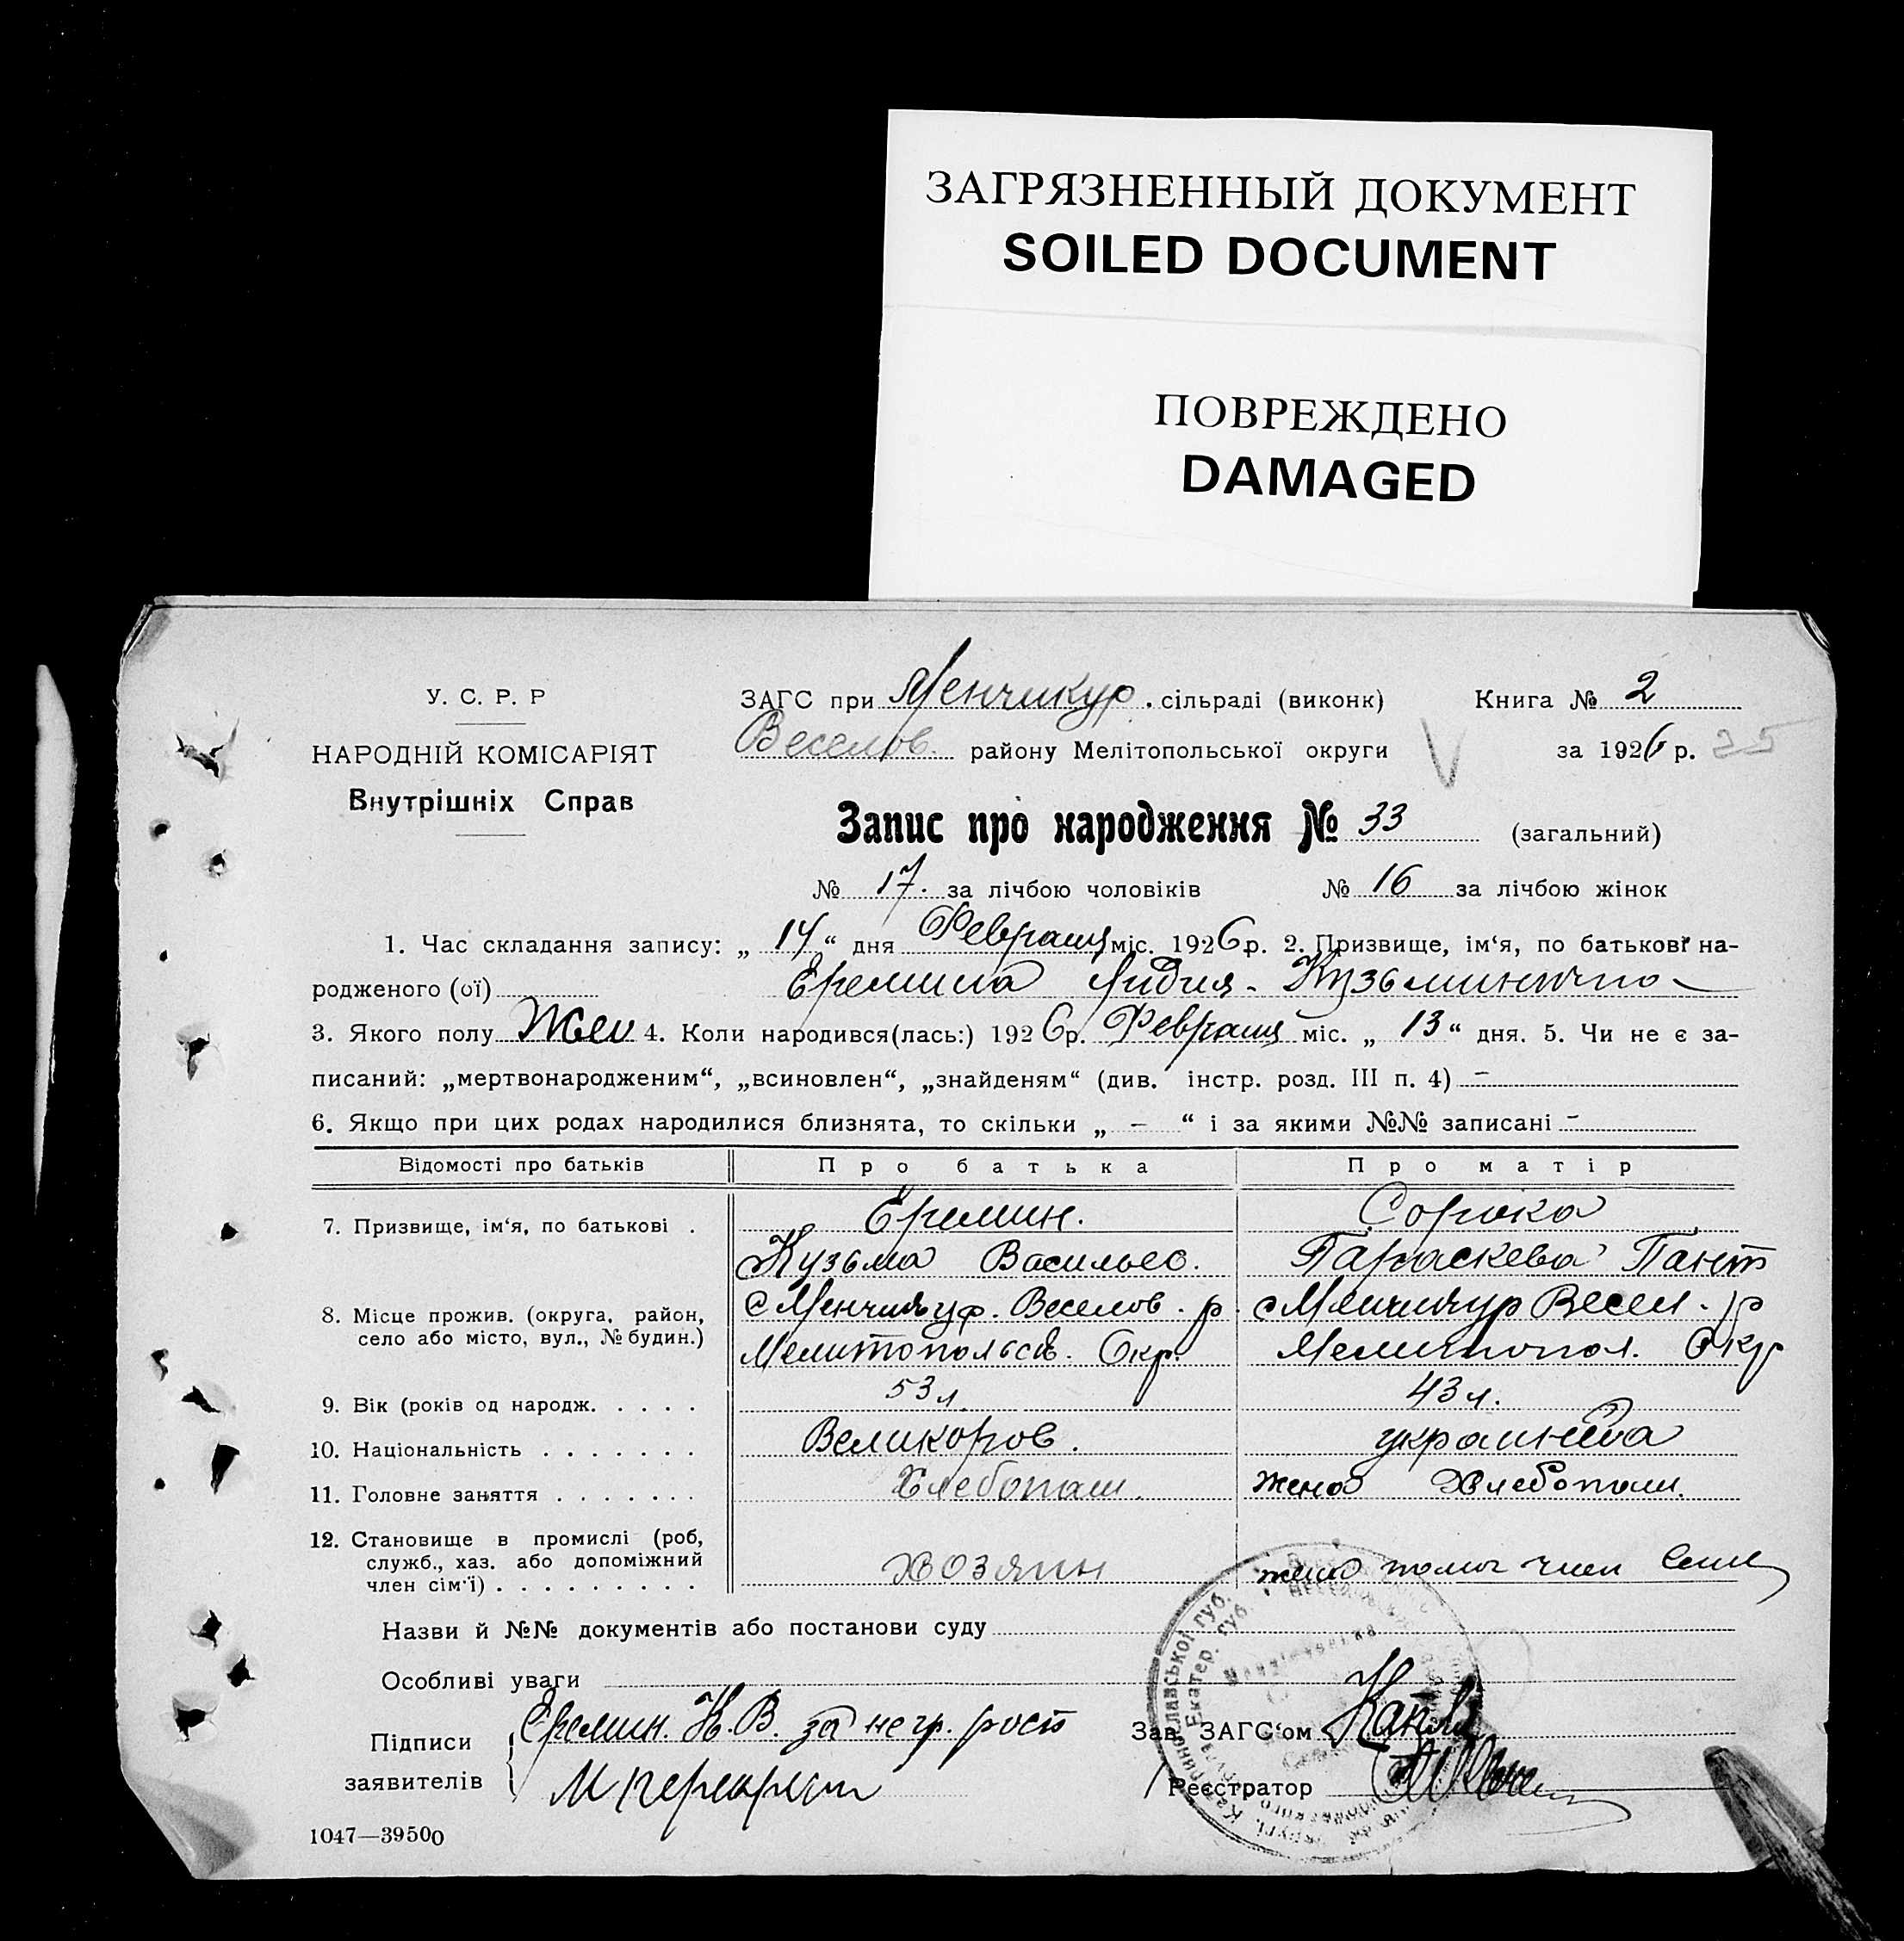 ЗАГРЯЗНЕННЫЙ ДОКУМЕНТ
SOILED DOCUMENT
ПОВРЕЖДЕНО
DAMAGED
У. С. Р. Р
НАРОДНІЙ КОМІСАРІЯТ
Внутрішніх Справ
ЗАГС при Менчикур. сільраді (виконк) Книга № 2
Веселов. району Мелітопольської округи за 1926 р. 25
Запис про народження № 33 (загальний)
№ 17. за лічбою чоловіків № 16 за лічбою жінок
1. Час складання запису: „ 14 “ дня Февраля міс. 1926 р. 2. Призвище, ім‘я, по батькові на-
родженого (ої) Еремина Лидия
3. Якого полу Жен 4. Коли народився(лась:) 1926 р. Февраля міс. „ 13 “ дня. 5. Чи не є за-
писаний: „мертвонародженим“, „всиновлен“, „знайденям“ (див. інстр. розд. III п. 4) –
6. Якщо при цих родах народилися близнята, то скільки „ – “ і за якими №№ записані –
Відомості про батьків Про батька Про матір
7. Призвище, ім‘я, по батькові . Еремин. Сорока
Кузьма Васильев. Параскева Пант
8. Місце прожив. (округа, район, с Менчикур. Веселов. р. с Менчикур Весел. р
село або місто, вул., № будин.) Мелитопольск. Окр. Мелитопол. Окр
9. Вік (років од народж. . . . . 53 л. 43 л.
10. Національність . . . . . . . Великоров. украинка
11. Головне заняття . . . . . . . Хлебопаш. жена Хлебопаш.
12. Становище в промислі (роб,
служб., хаз. або допоміжний Хозяин жена помог член семи
член сім‘ї) . . . . . . . . .
Назви й №№ документів або постанови суду
Особливі уваги
Підписи Еремин. К. В. за негр. рост Зав. ЗАГС‘ом
заявителів Реєстратор
1047—39500